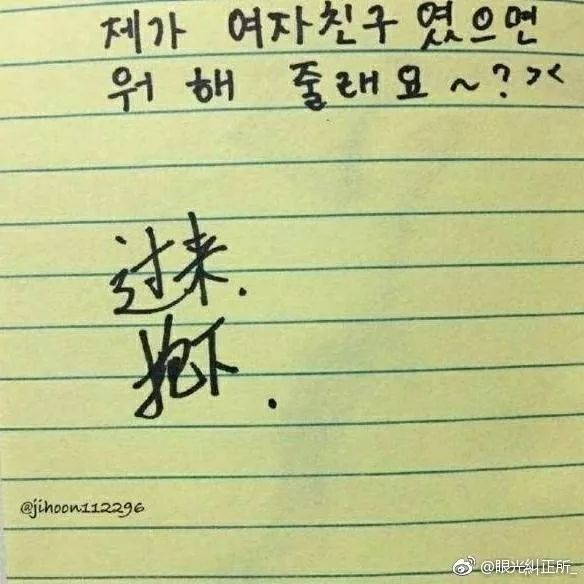 제가 여자친구 였으면
뭐 해 줄래요~?><
过来.
抱下.
@jihoon112296
@眼光糾正所_